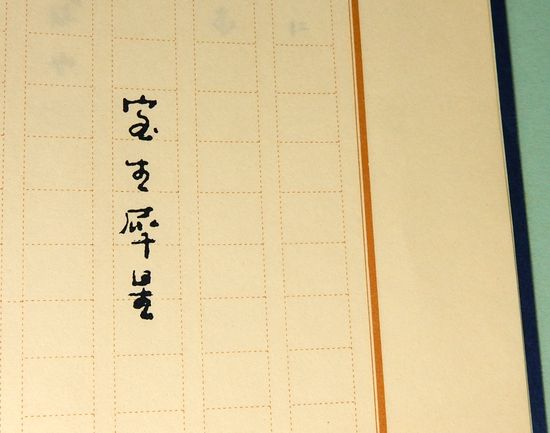 室生犀星